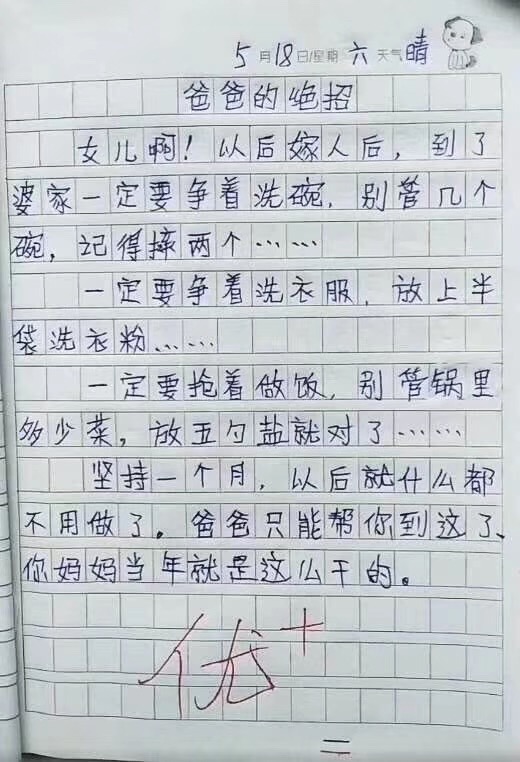 5月18日/星期 六 天气 晴
爸爸的绝招
女儿啊！以后嫁人后，到了
婆家一定要争着洗碗，别管几个
碗，记得摔两个……
一定要争着洗衣服，放上半
袋洗衣粉……
一定要抢着做饭，别管锅里
多少菜，放五勺盐就对了……
坚持一个月，以后就什么都
不用做了。爸爸只能帮你到这了、
你妈妈当年就是这么干的。
优+
二